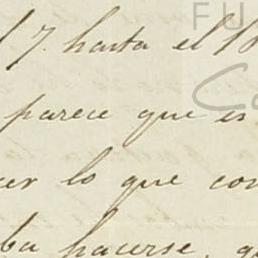 7. hasta el 16
parece que es
er lo que con
ba hacerse, q
FU
Ca